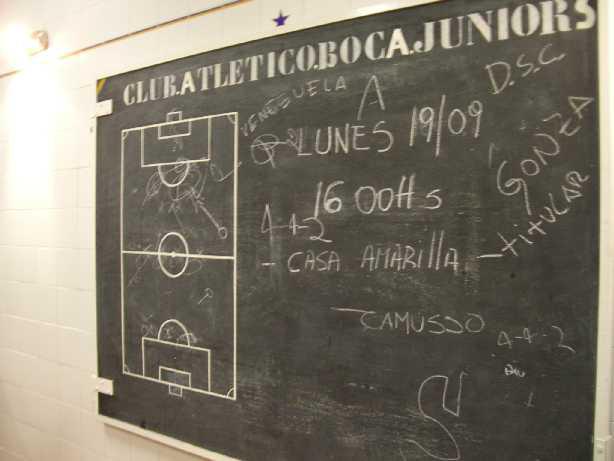 CLUB.ATLETICO.BOCA.JUNIORS
VENEZUELA
A
D.S.C.
LUNES 19/09
GONZA
TITULAR
16 00Hs
4-4-2
- CASA AMARILLA -
CAMUSSO
4-4-2